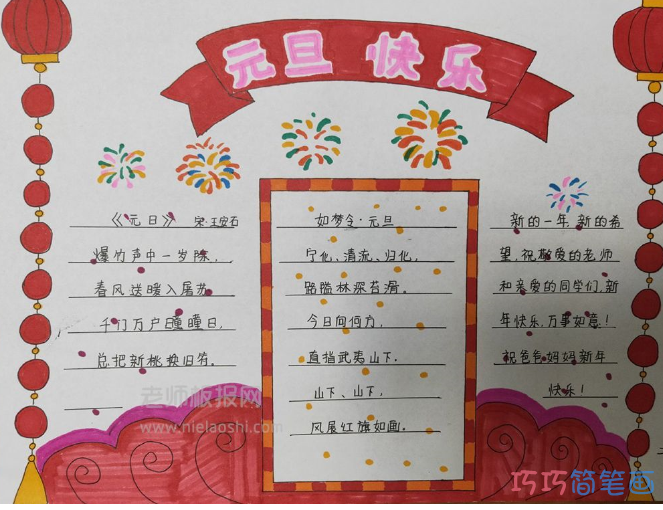 元旦 快乐
《元日》 宋·王安石
爆竹声中一岁除，
春风送暖入屠苏
千门万户曈曈日，
总把新桃换旧符。
如梦令·元旦
宁化、清流、归化，
路隘林深苔滑。
今日向何方，
直指武夷山下。
山下、山下，
风展红旗如画。
新的一年，新的希
望，祝敬爱的老师
和亲爱的同学们，新
年快乐，万事如意！
祝爸爸妈妈新年
快乐！
老师板报网
www.nielaoshi.com
巧巧简笔画